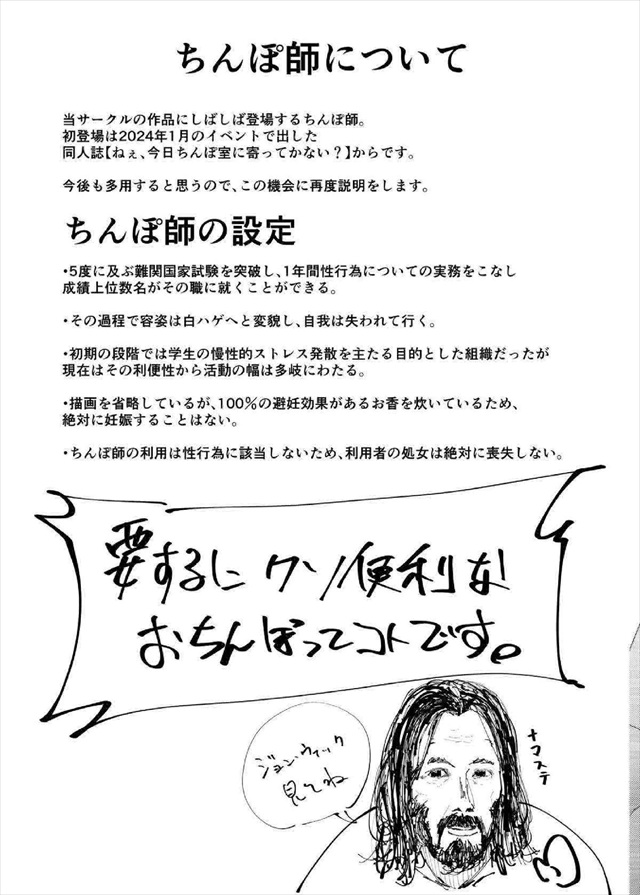 ちんぽ師について
当サークルの作品にしばしば登場するちんぽ師。
初登場は2024年1月のイベントで出した
同人誌【ねぇ、今日ちんぽ室に寄ってかない？】からです。
今後も多用すると思うので、この機会に再度説明をします。
ちんぽ師の設定
・5度に及ぶ難関国家試験を突破し、1年間性行為についての実務をこなし
成績上位数名がその職に就くことができる。
・その過程で容姿は白ハゲへと変貌し、自我は失われて行く。
・初期の段階では学生の慢性的ストレス発散を主たる目的とした組織だったが
現在はその利便性から活動の幅は多岐にわたる。
・描画を省略しているが、100％の避妊効果があるお香を炊いているため、
絶対に妊娠することはない。
・ちんぽ師の利用は性行為に該当しないため、利用者の処女は絶対に喪失しない。
要するに クソ便利な
おちんぽってコトです。
ジョン・ウィック
見てね
ナマステ